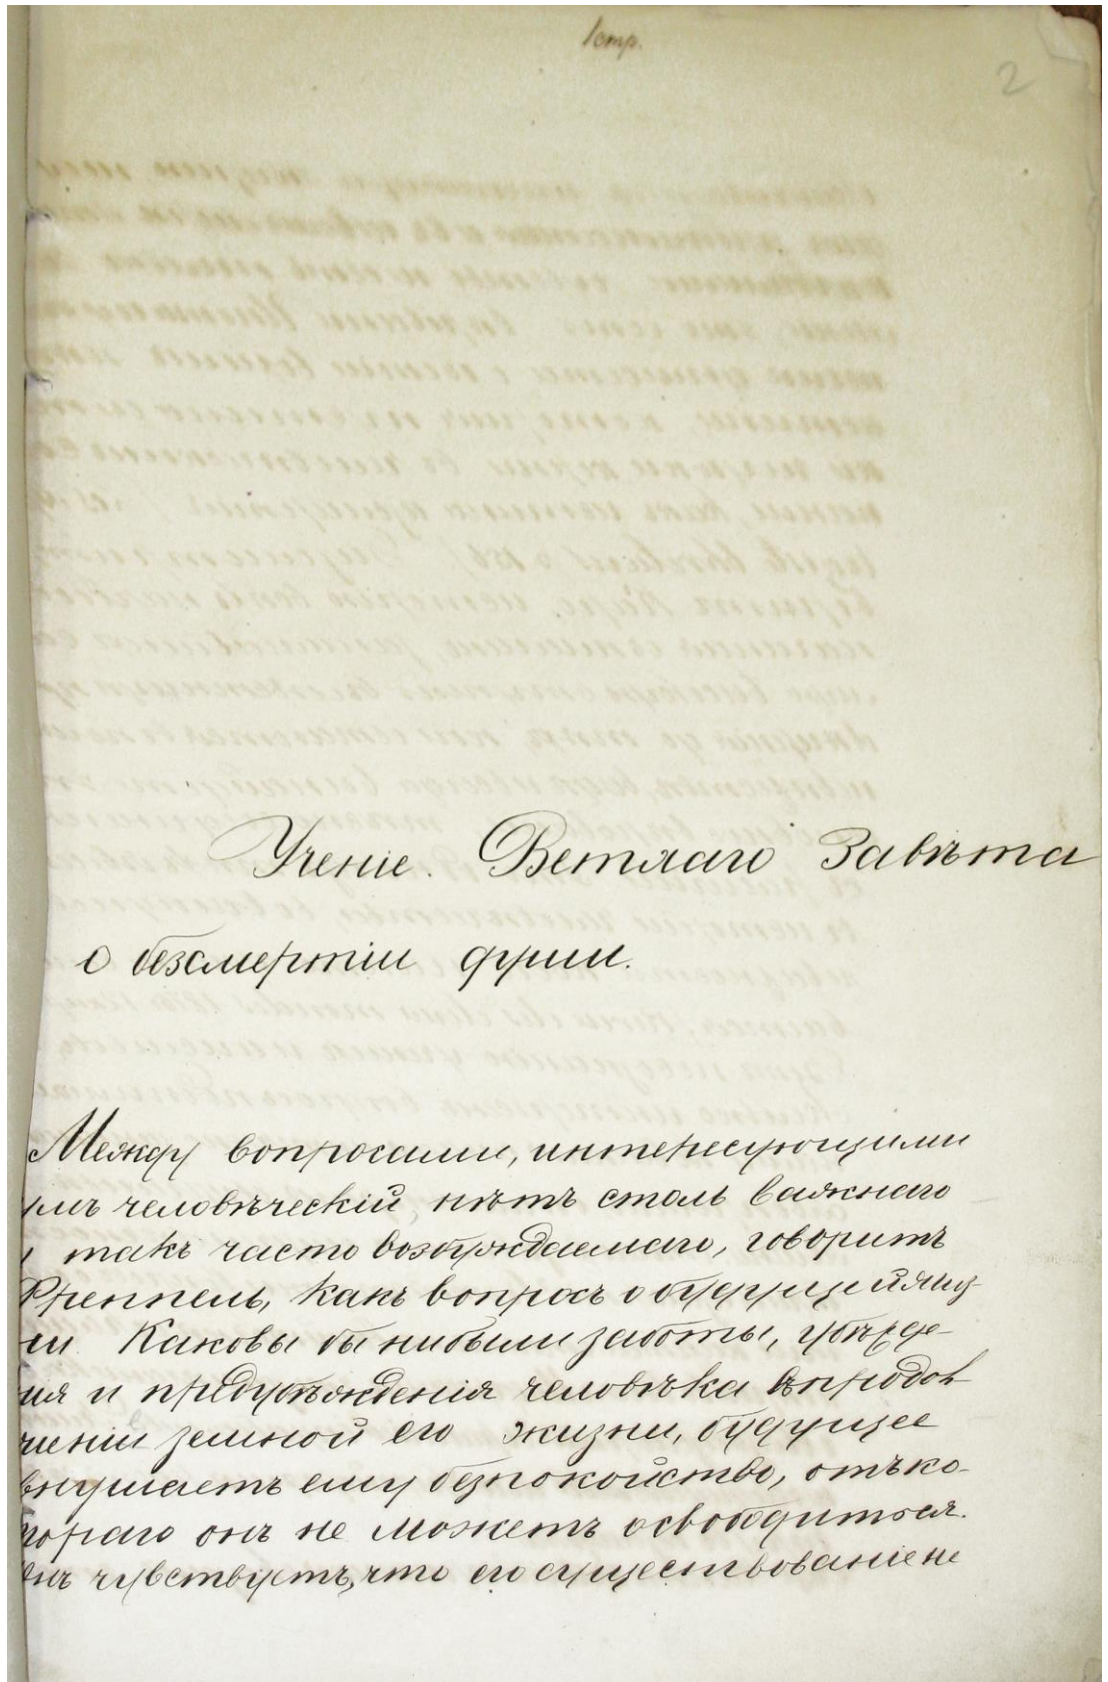 1 стр.
2
Ученіе. Ветхаго Завѣта
о безсмертіи души.
Между вопросами, интересующими
умъ человѣческій, нѣтъ столь важнаго
и такъ часто возбуждаемаго, говоритъ
Фреппель, какъ вопросъ о будущей жиз-
ни. Каковы бы ни были заботы, убѣжде-
ія и предубѣжденія человѣка въ продол
женіи земной его жизни, будущее
внушаетъ ему безпокойство, отъ ко-
тораго онъ не можетъ освободиться.
Онъ чувствуетъ, что его существованіе не